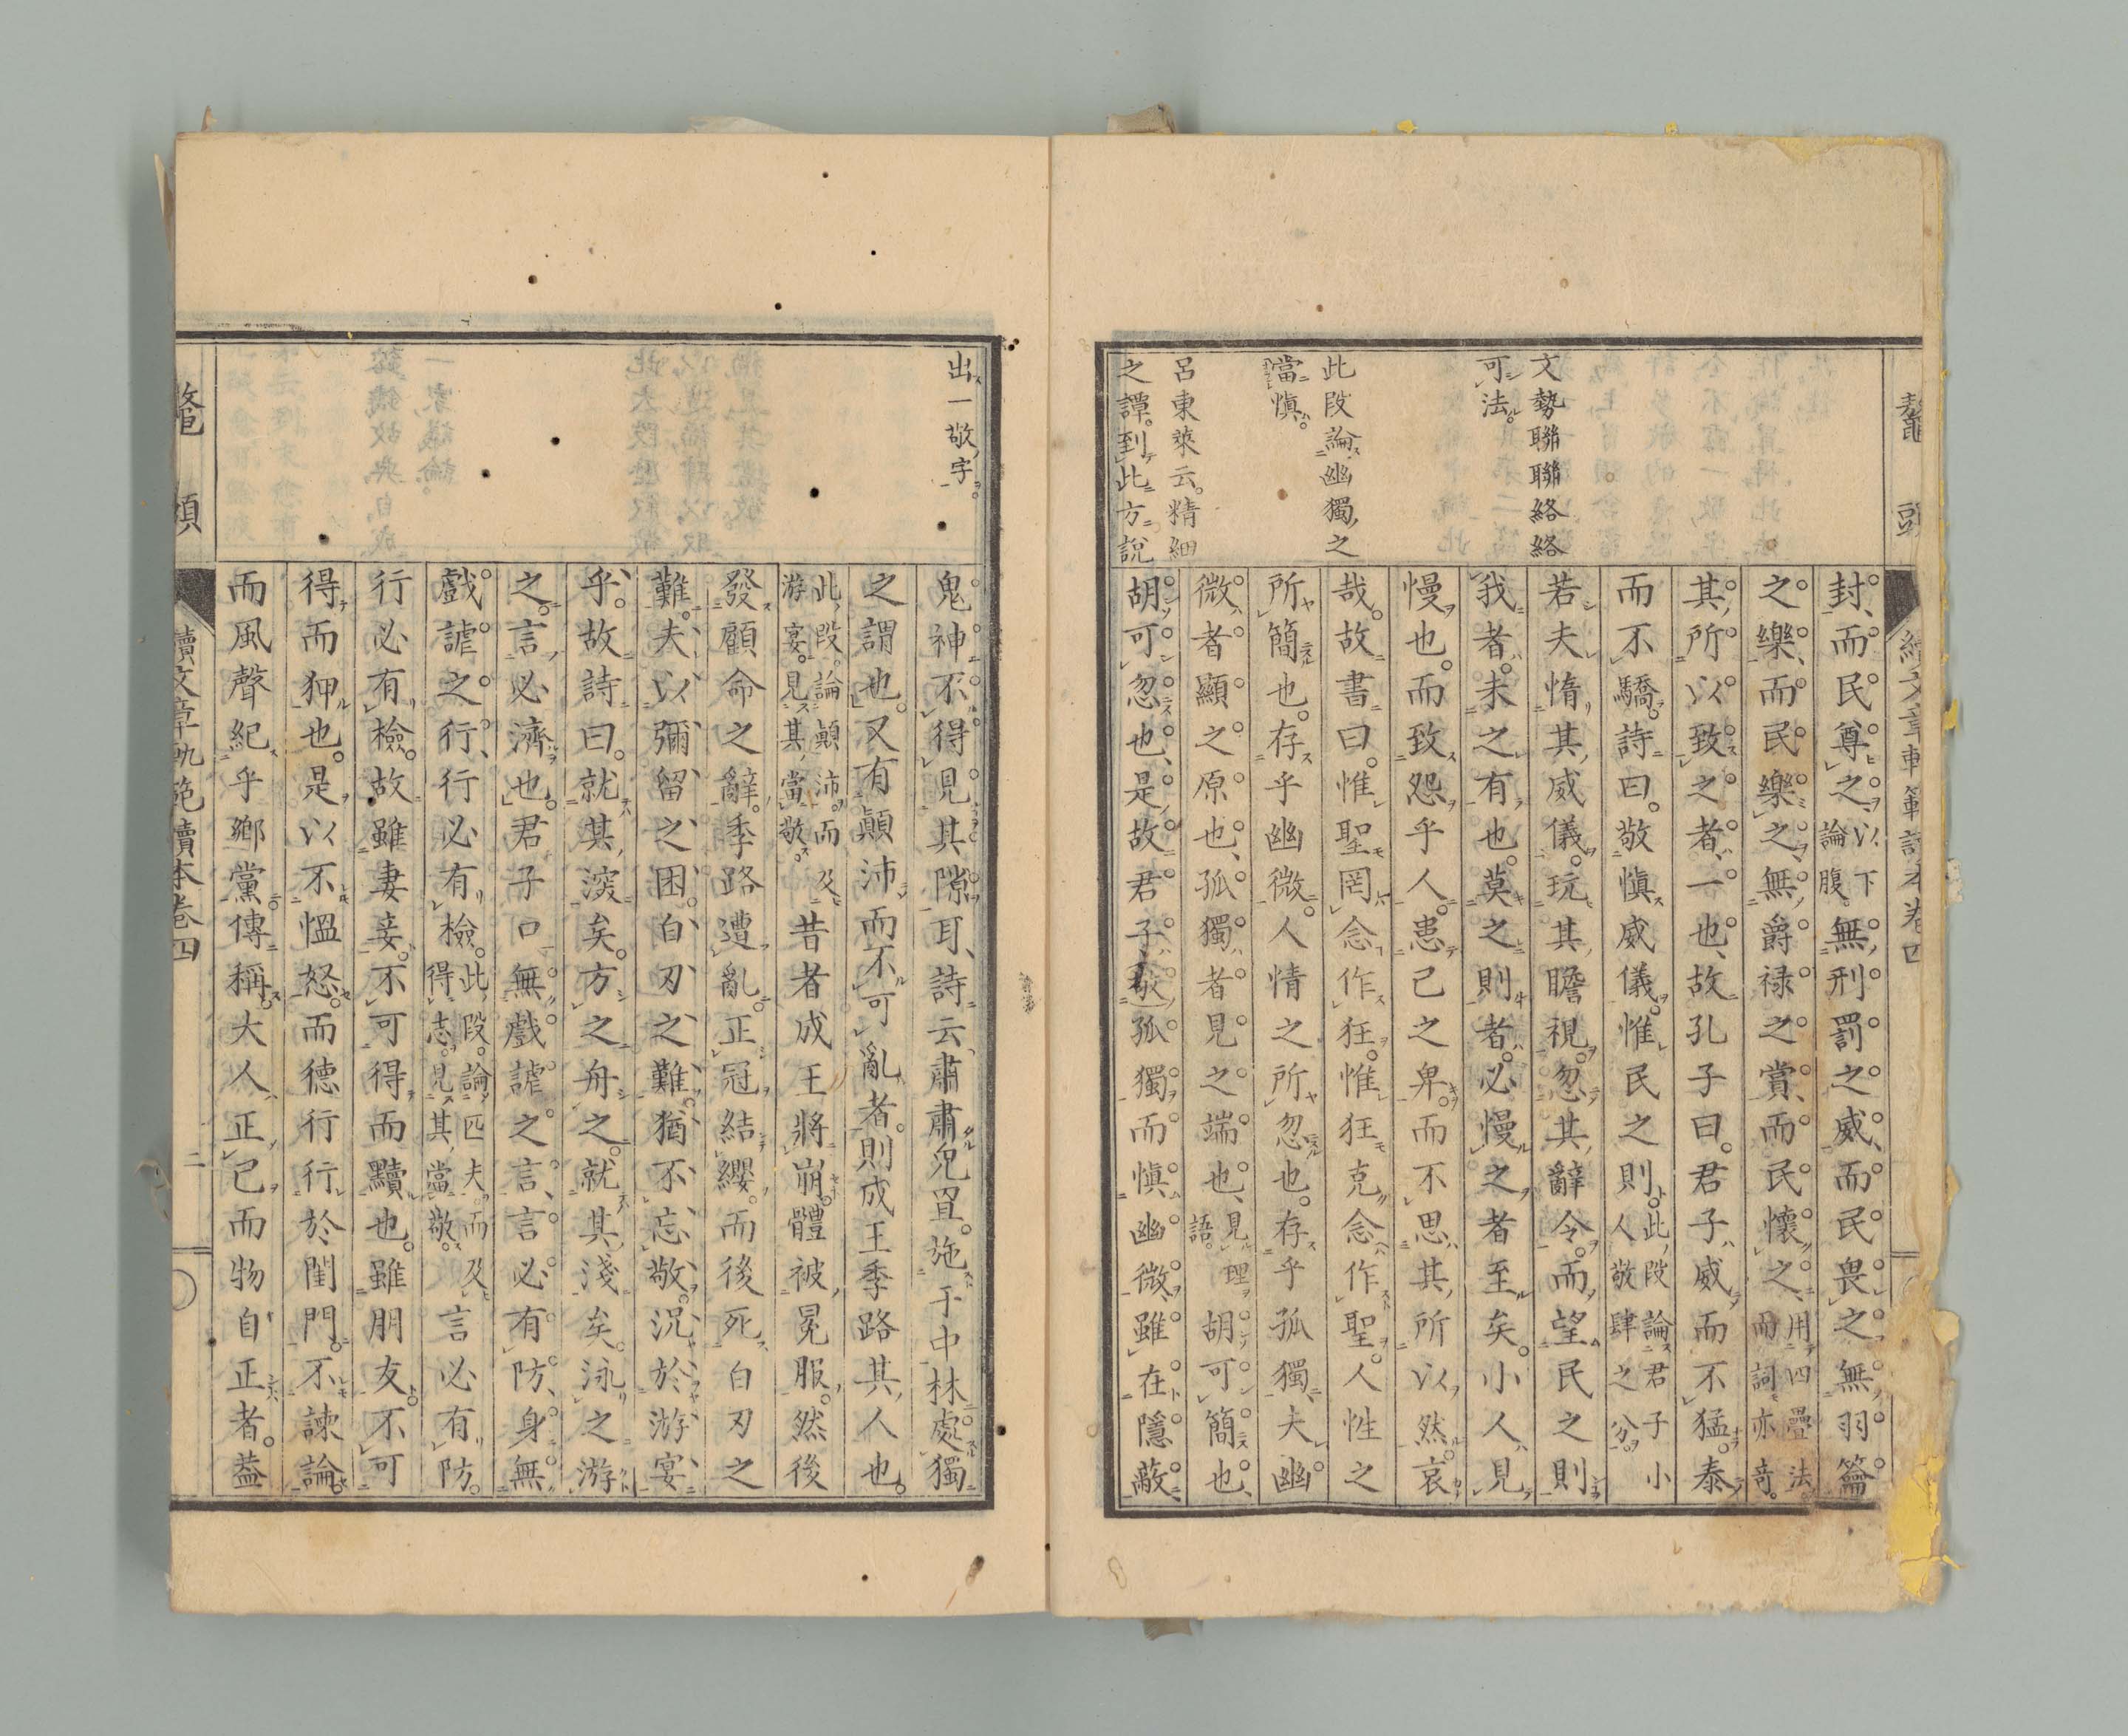 鼇頭
續文章軌範讀本卷四
文勢聯聯絡絡
可法。
此段論幽獨之
當愼。
呂東萊云。精細
之譚。到此方說
封、而民尊之、以下論腹。無刑罰之威、而民畏之、無羽籥
之樂、而民樂之、無爵祿之賞、而民懷之、用四疊法。而詞亦奇。
其所以致之者、一也、故孔子曰。君子威而不猛。泰
而不驕。詩曰。敬愼威儀。惟民之則。此段論君子小人敬肆之分。
若夫惰其威儀。玩其瞻視。忽其辭令。而望民之則
我者。未之有也。莫之則者。必慢之者至矣。小人見
慢也。而致怨乎人。患己之卑。而不思其所以然。哀
哉。故書曰。惟聖罔念作狂。惟狂克念作聖。人性之
所簡也。存乎幽微。人情之所忽也。存乎孤獨、夫幽
微者。顯之原也、孤獨者。見之端也、見理語。胡可簡也、
胡可忽也、是故君子敬孤獨而愼幽微、雖在隱蔽、
出一敬字。
鬼神不得見其隙耳、詩云肅肅兔罝。施于中林。處獨
之謂也。又有顚沛而不可亂者。則成王季路其人也。
此段論顚沛。而及游宴。見其當敬。昔者成王將崩。體被冕服。然後
發顧命之辭。季路遭亂。正冠結纓。而後死。白刃之
難。夫以彌留之困。白刃之難、猶不忘敬。況於游宴
乎。故詩曰。就其深矣。方之舟之。就其淺矣。泳之游
之。言必濟也。君子口無戲謔之言、言必有防、身無
戲謔之行、行必有檢。此段論匹夫而及得志。見其當敬。言必有防。
行必有檢。故雖妻妾。不可得而黷也。雖朋友。不可
得而狎也。是以不慍怒。而德行行於閨門。不諫論。
而風聲紀乎鄉黨。傳稱。大人正己。而物自正者。蓋
鼇頭
續文章軌範讀本卷四
二